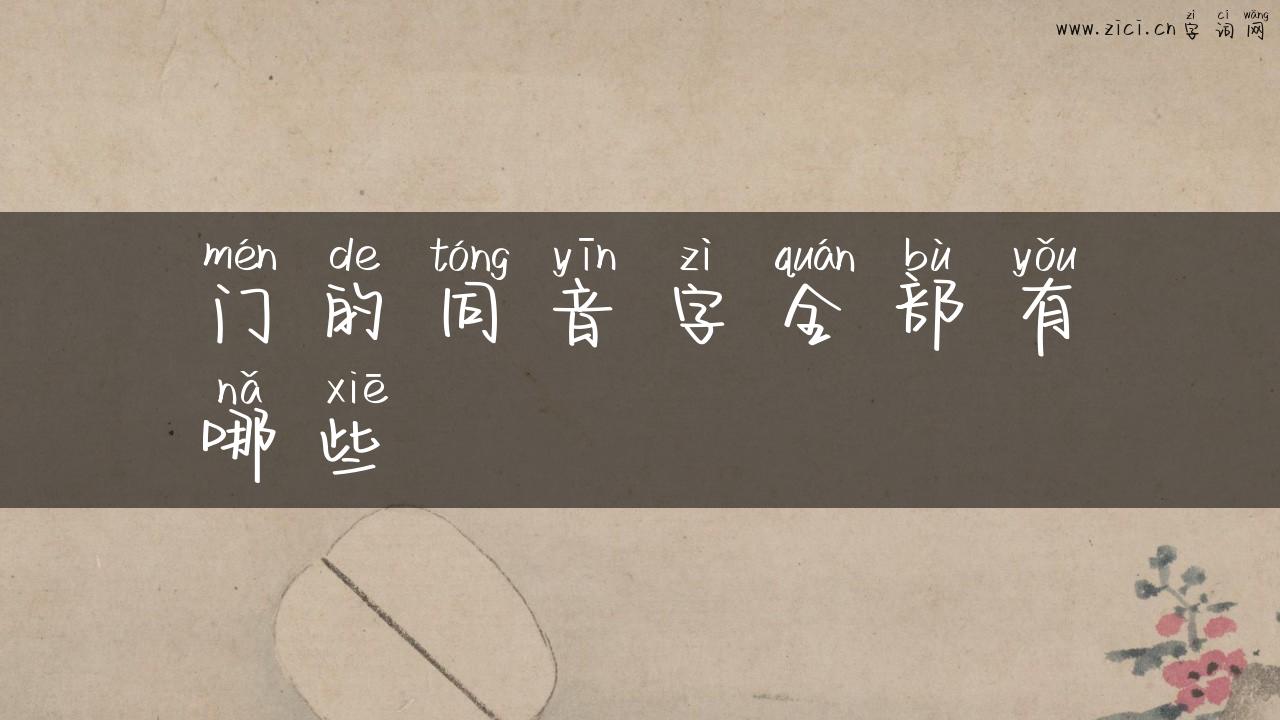 zì cí wǎng
www.zici.cn 字词网
mén de tóng yīn zì quán bù yǒu
门的同音字全部有
nǎ xiē
哪些